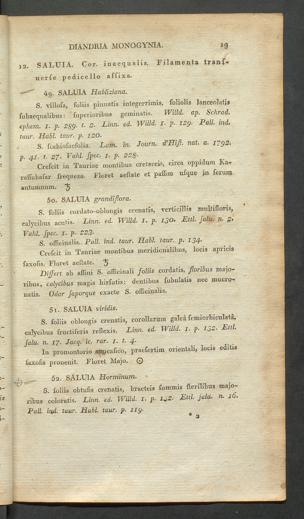 DIANDRIA MONOGYNIA. 19
12. SALUIA. Cor. inaequalis. Filamenta transf-
uerfe pedicello affixa.
49. SALUIA Habliziana.
S. villofa, foliis pinnatis integerrimis, foliolis lanceolatis
fubaequalibus: fuperioribus geminatis. Willd. ap. Schrad.
ephem. 1. p. 289. t. 2. Linn. ed. Willd. 1. p. 129. Pall. ind.
taur. Habl. taur. p. 120.
S. fcabiofaefolia. Lam. in. Journ. d'Hift. nat. a. 1792.
p. 41. t. 27. Vahl. fpec. 1. p. 228.
Crefcit in Tauriae montibus cretaceis, circa oppidum Ka-
raffubafar frequens. Floret aeftate et paffim ufque in ferum
autumnum. ♃
50. SALUIA grandiflora.
S. foliis cordato-oblongis crenatis, verticillis multifloris,
calycibus acutis. Linn. ed. Willd. 1. p. 130. Ettl. falu. n. 2.
Vahl. fpec. 1. p. 223.
S. officinalis. Pall. ind. taur. Habl. taur. p. 134.
Crefcit in Tauriae montibus meridionalibus, locis apricis
faxofis. Floret aeftate. ♃
Differt ab affini S. officinali foliis cordatis, floribus majo-
ribus, calycibus magis hirfutis: dentibus fubulatis nec mucro-
natis. Odor faporque exacte S. officinalis.
51. SALUIA viridis.
S. foliis oblongis crenatis, corollarum galea femiorbiculata,
calycibus fructiferis reflexis. Linn. ed. Willd. 1. p. 132. Ettl.
falu. n. 17. Jacq. ic. rar. 1. t. 4.
In promontorio caucafico, praefertim orientali, locis editis
faxofis prouenit. Floret Majo. ☉
52. SALUIA Horminum.
S. foliis obtufis crenatis, bracteis fummis fterilibus majo-
ribus coloratis. Linn. ed. Willd. 1. p. 132. Ettl. falu. n. 16.
Pall. ind. taur. Habl. taur. p. 119.
* 2